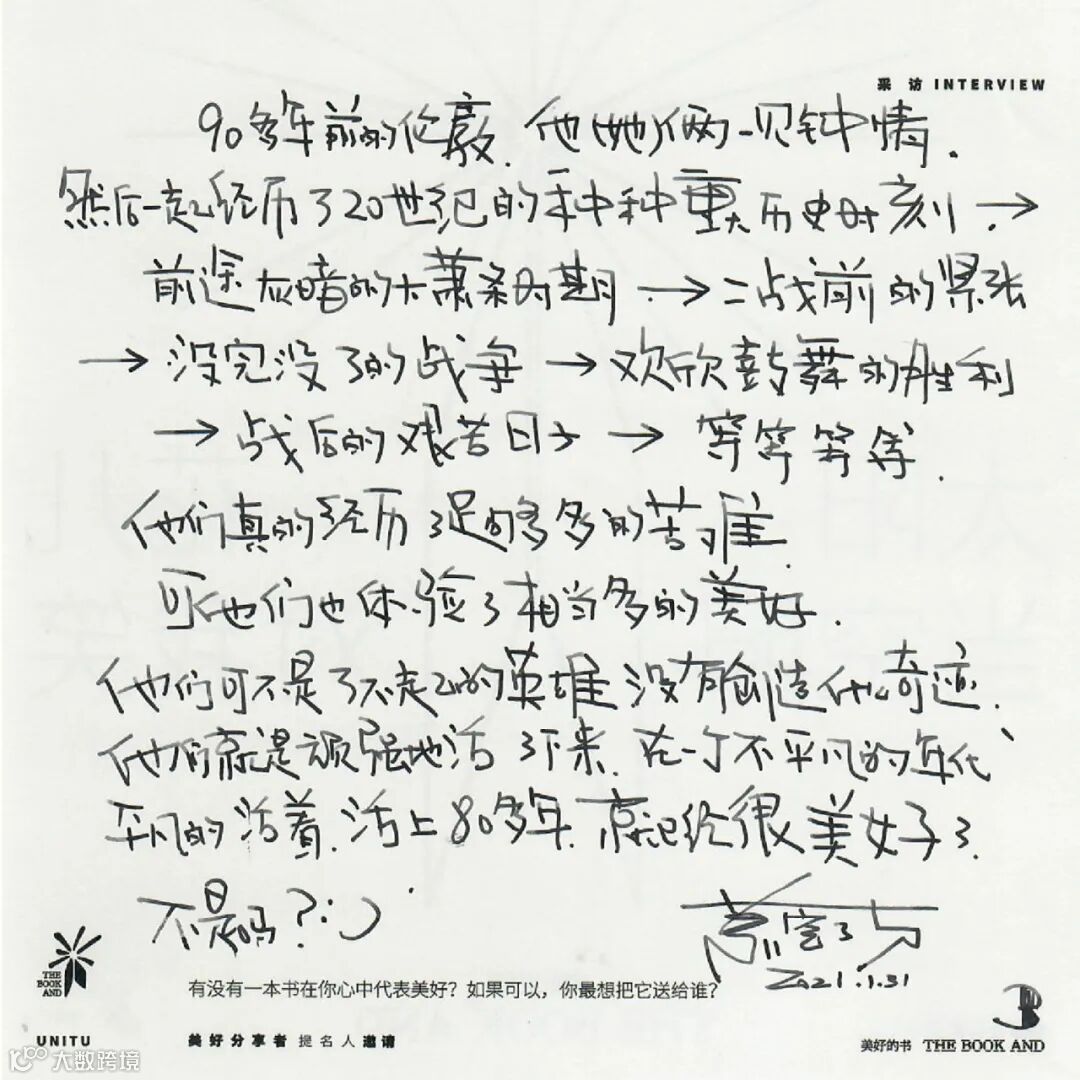 采 访 INTERVIEW
90多年前的伦敦. 他(她)俩一见钟情.
然后一起经历了20世纪的种种重大历史时刻. →
前途灰暗的大萧条时期 → 二战前的紧张
→ 没完没了的战争 → 欢欣鼓舞的胜利
→ 战后的艰苦日子 → 等等等等.
他们真的经历了足够多多的苦难.
可他们也体验了相当多的美好.
他们可不是了不起的英雄 没有创造什么奇迹.
他们就是顽强地活了下来. 在一个不平凡的年代
平凡的活着. 活上80多年. 就已经很美好了.
不是吗?:)
2021.1.31
THE
BOOK
AND
有没有一本书在你心中代表美好?如果可以,你最想把它送给谁?
UNITU 美好分享者 提名人 邀请 美好的书 THE BOOK AND
大数跨境